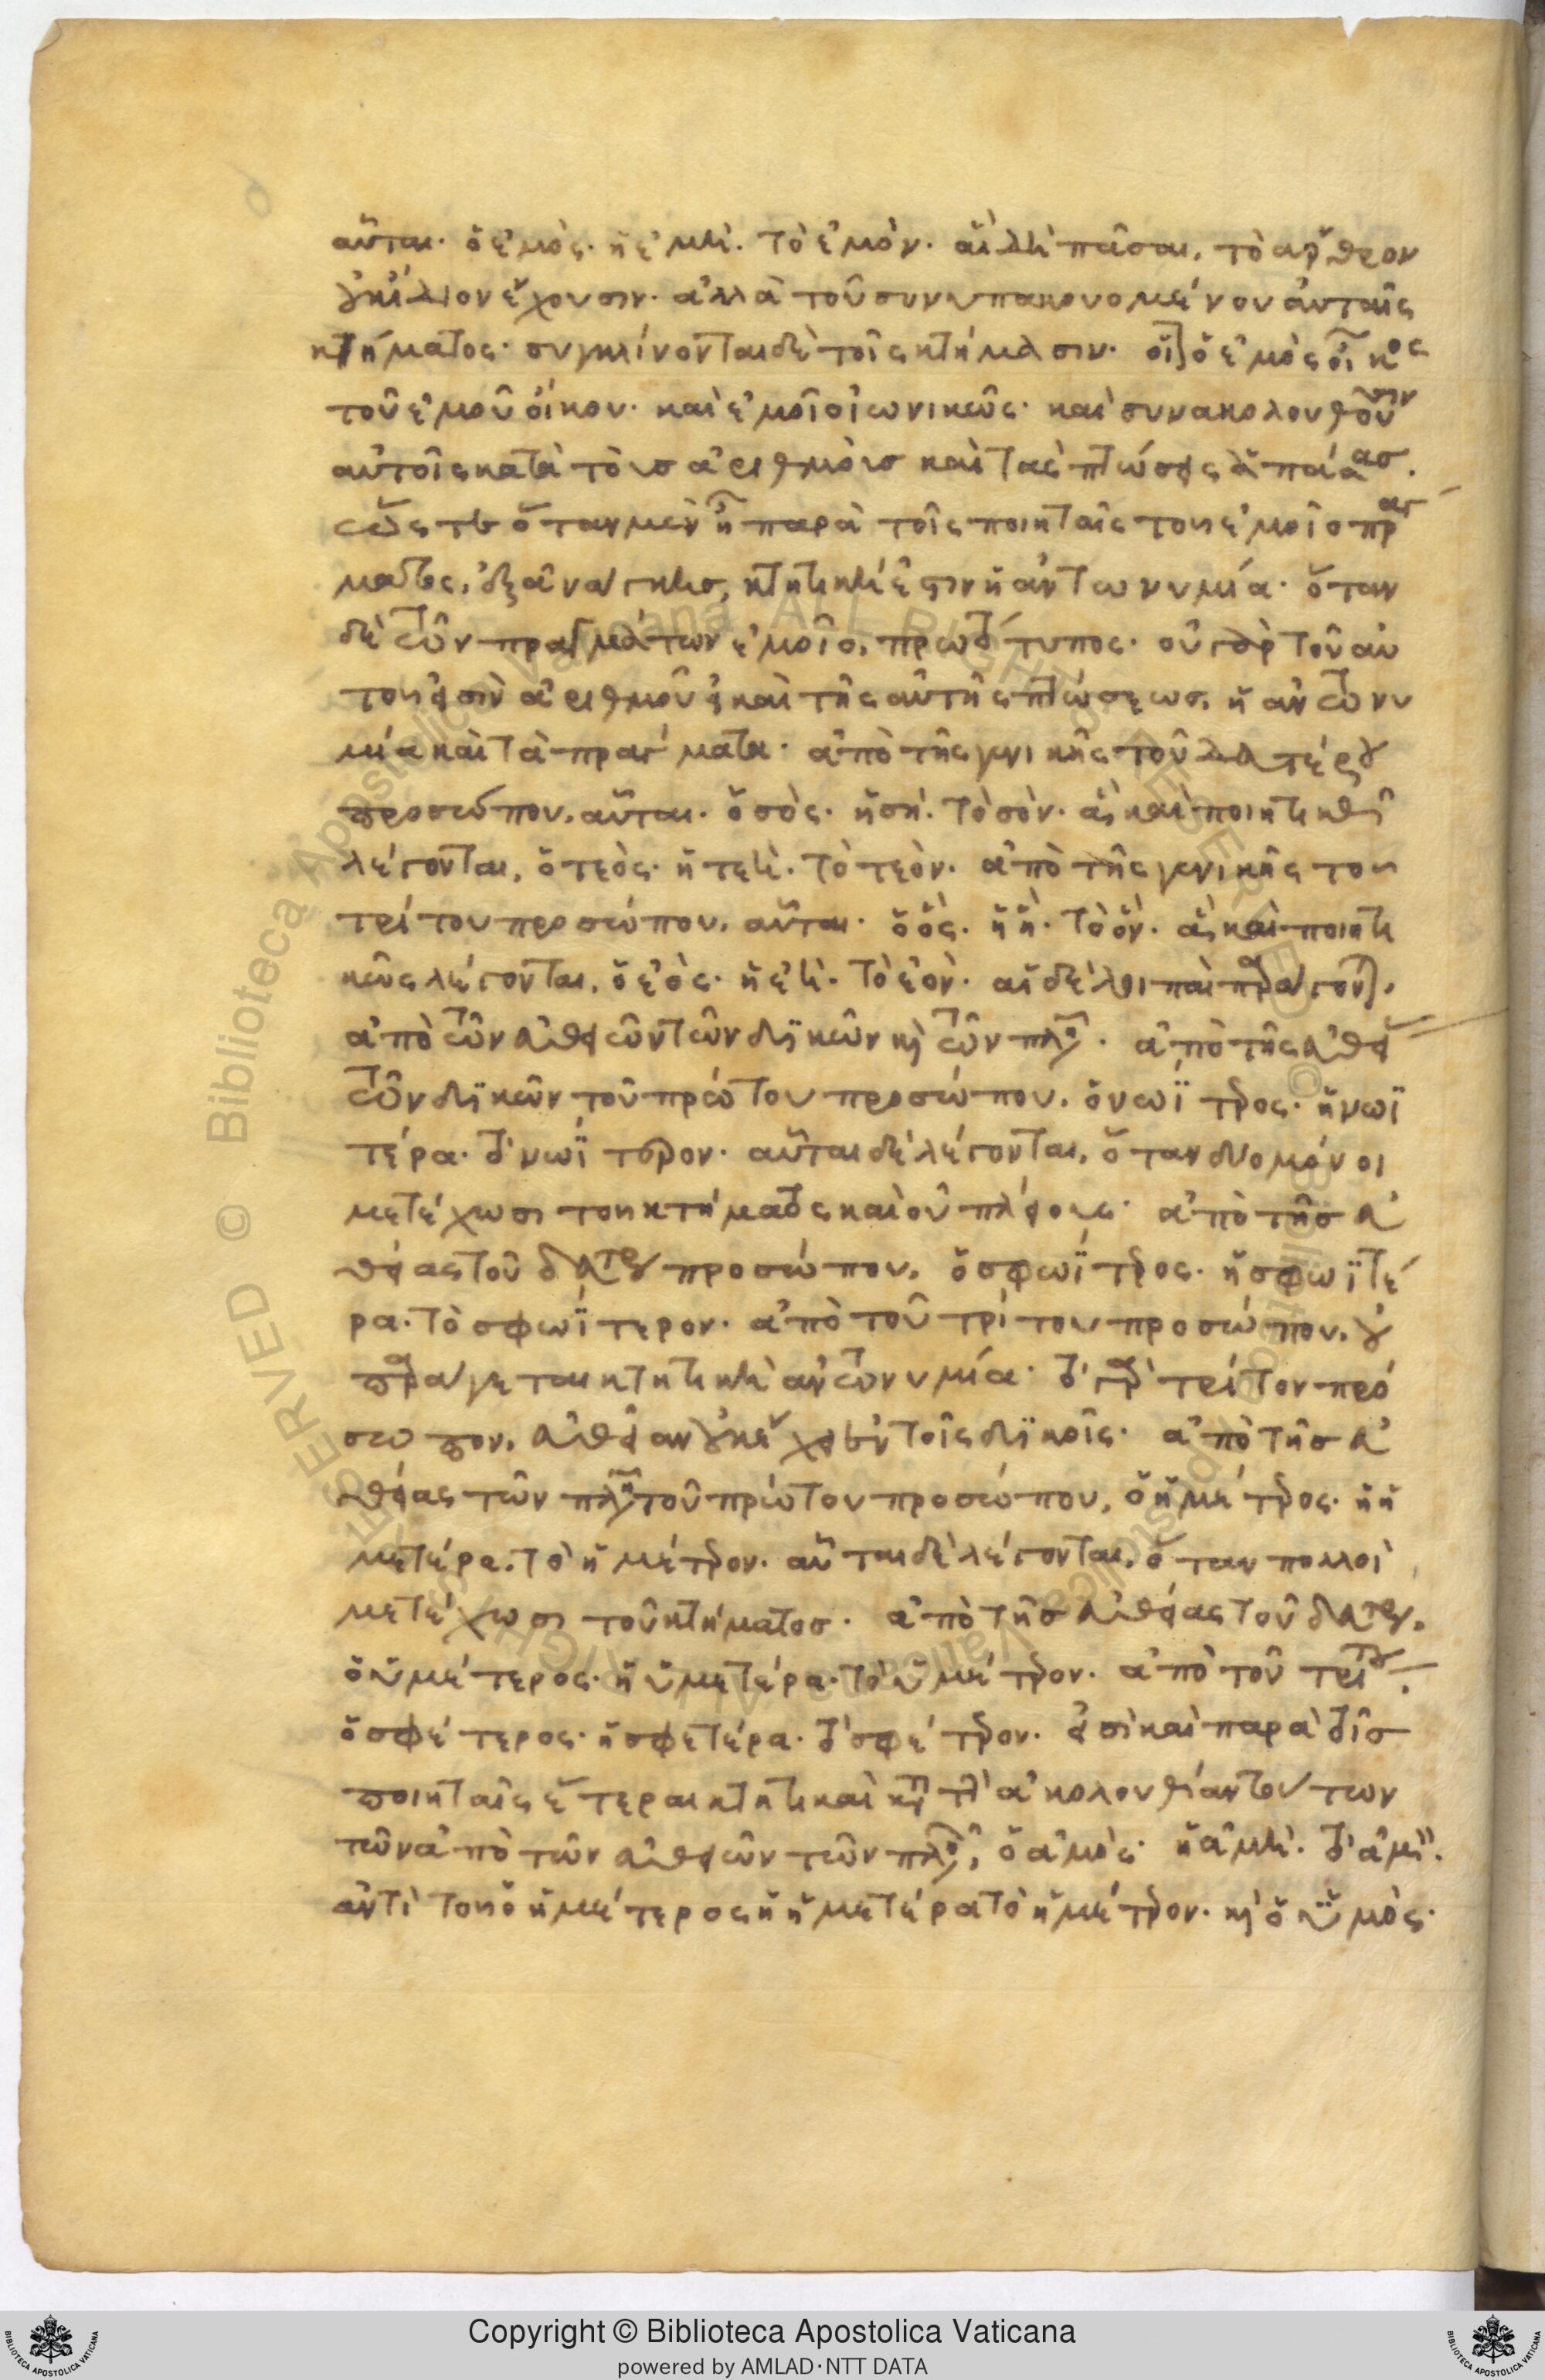 αὗται· ὁ ἐμὸς· ἡ ἐμὴ· τὸ ἐμὸν· αἳ δὴ πᾶσαι, τὸ ἄρθρον
οὐκ ἴδιον ἔχουσιν· ἀλλὰ τοῦ συνυπακουομένου αὐταῖς
κτήματος· συγκλίνονται δὲ τοῖς κτήμασιν· οἷον ὁ ἐμὸς οἶκος
τοῦ ἐμοῦ οἴκου· καὶ ἐμοῖο ἰωνικῶς· καὶ συνακολουθοῦσιν
αὐτοῖς κατὰ τοὺς ἀριθμοὺς καὶ τὰς πτώσεις ἁπάσας.
ὥστε ὅταν μὲν ᾖ παρὰ τοῖς ποιηταῖς τοῦ ἐμοῖο πράγ
ματος, ἐξ ἀνάγκης, κτητική ἐστιν ἡ ἀντωνυμία· ὅταν
δὲ τῶν πραγμάτων ἐμοῖο, πρωτότυπος· οὐ γὰρ τοῦ αὐ
τοῦ εἰσὶν ἀριθμοῦ ἢ καὶ τῆς αὐτῆς πτώσεως, ἡ ἀντωνυ
μία καὶ τὰ πράγματα· ἀπὸ τῆς γενικῆς τοῦ δευτέρου
προσώπου, αὗται· ὁ σὸς· ἡ σὴ· τὸ σὸν· αἳ καὶ ποιητικῶς
λέγονται, ὁ τεὸς· ἡ τεὴ· τὸ τεὸν· ἀπὸ τῆς γενικῆς τοῦ
τρίτου προσώπου, αὗται· ὁ ὃς· ἡ ἣ· τὸ ὃν· αἳ καὶ ποιητι
κῶς λέγονται, ὁ ἑὸς· ἡ ἑὴ· τὸ ἑὸν· αἱ δὲ λοιπαὶ παράγονται,
ἀπὸ τῶν εὐθειῶν τῶν δυϊκῶν καὶ τῶν πληθυντικῶν· ἀπὸ τῆς εὐθείας
τῶν δυϊκῶν τοῦ πρώτου προσώπου, ὁ νωΐτερος· ἡ νωϊ
τέρα· τὸ νωΐτερον· αὗται δὲ λέγονται, ὅταν δύο μόνοι
μετέχωσι τοῦ κτήματος καὶ οὐ πλείους· ἀπὸ τῆς εὐ
θείας τοῦ δευτέρου προσώπου, ὁ σφωΐτερος· ἡ σφωϊτέ
ρα· τὸ σφωΐτερον· ἀπὸ τοῦ τρίτου προσώπου, οὐ
παράγεται κτητικὴ ἀντωνυμία· τὸ γὰρ τρίτον πρό
σωπον, εὐθεῖαν οὐκ ἔχει ἐν τοῖς δυϊκοῖς· ἀπὸ τῆς εὐ
θείας τῶν πληθυντικῶν τοῦ πρώτου προσώπου, ὁ ἡμέτερος· ἡ ἡ
μετέρα· τὸ ἡμέτερον· αὗται δὲ λέγονται, ὅταν πολλοὶ
μετέχωσι τοῦ κτήματος· ἀπὸ τῆς εὐθείας τοῦ δευτέρου,
ὁ ὑμέτερος· ἡ ὑμετέρα· τὸ ὑμέτερον· ἀπὸ τοῦ τρίτου,
ὁ σφέτερος· ἡ σφετέρα· τὸ σφέτερον· εἰσὶ καὶ παρὰ τοῖς
ποιηταῖς ἕτεραι κτητικαὶ κατὰ τὴν ἀκολουθίαν τούτων
τῶν ἀπὸ τῶν εὐθειῶν τῶν πληθυντικῶν, ὁ ἁμὸς· ἡ ἁμὴ· τὸ ἁμὸν.
ἀντὶ τοῦ ὁ ἡμέτερος ἡ ἡμετέρα τὸ ἡμέτερον· καὶ ὁ ὑμὸς·
Copyright © Biblioteca Apostolica Vaticana
powered by AMLAD·NTT DATA